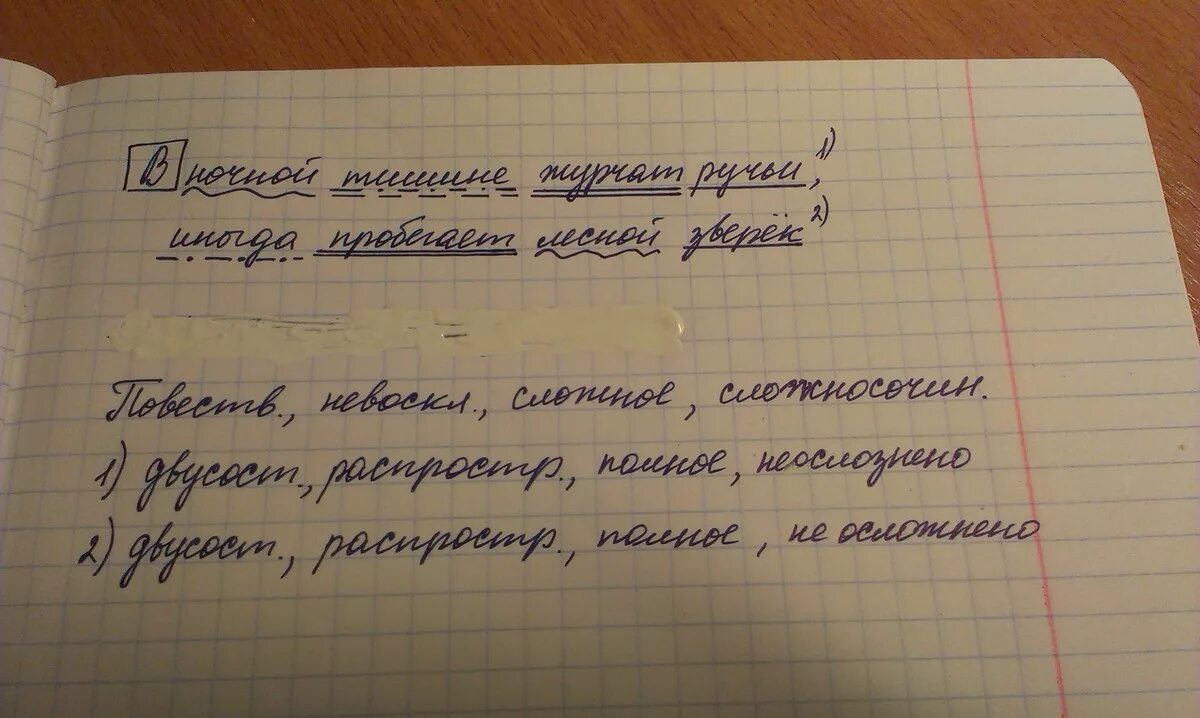 В ночной тишине журчат ручьи, 1)
иногда пробегает лесной зверёк 2)
Повеств., невоскл., сложное, сложносочин.
1) двусост., распростр., полное, неослознено
2) двусост., распростр., полное, не осложнено